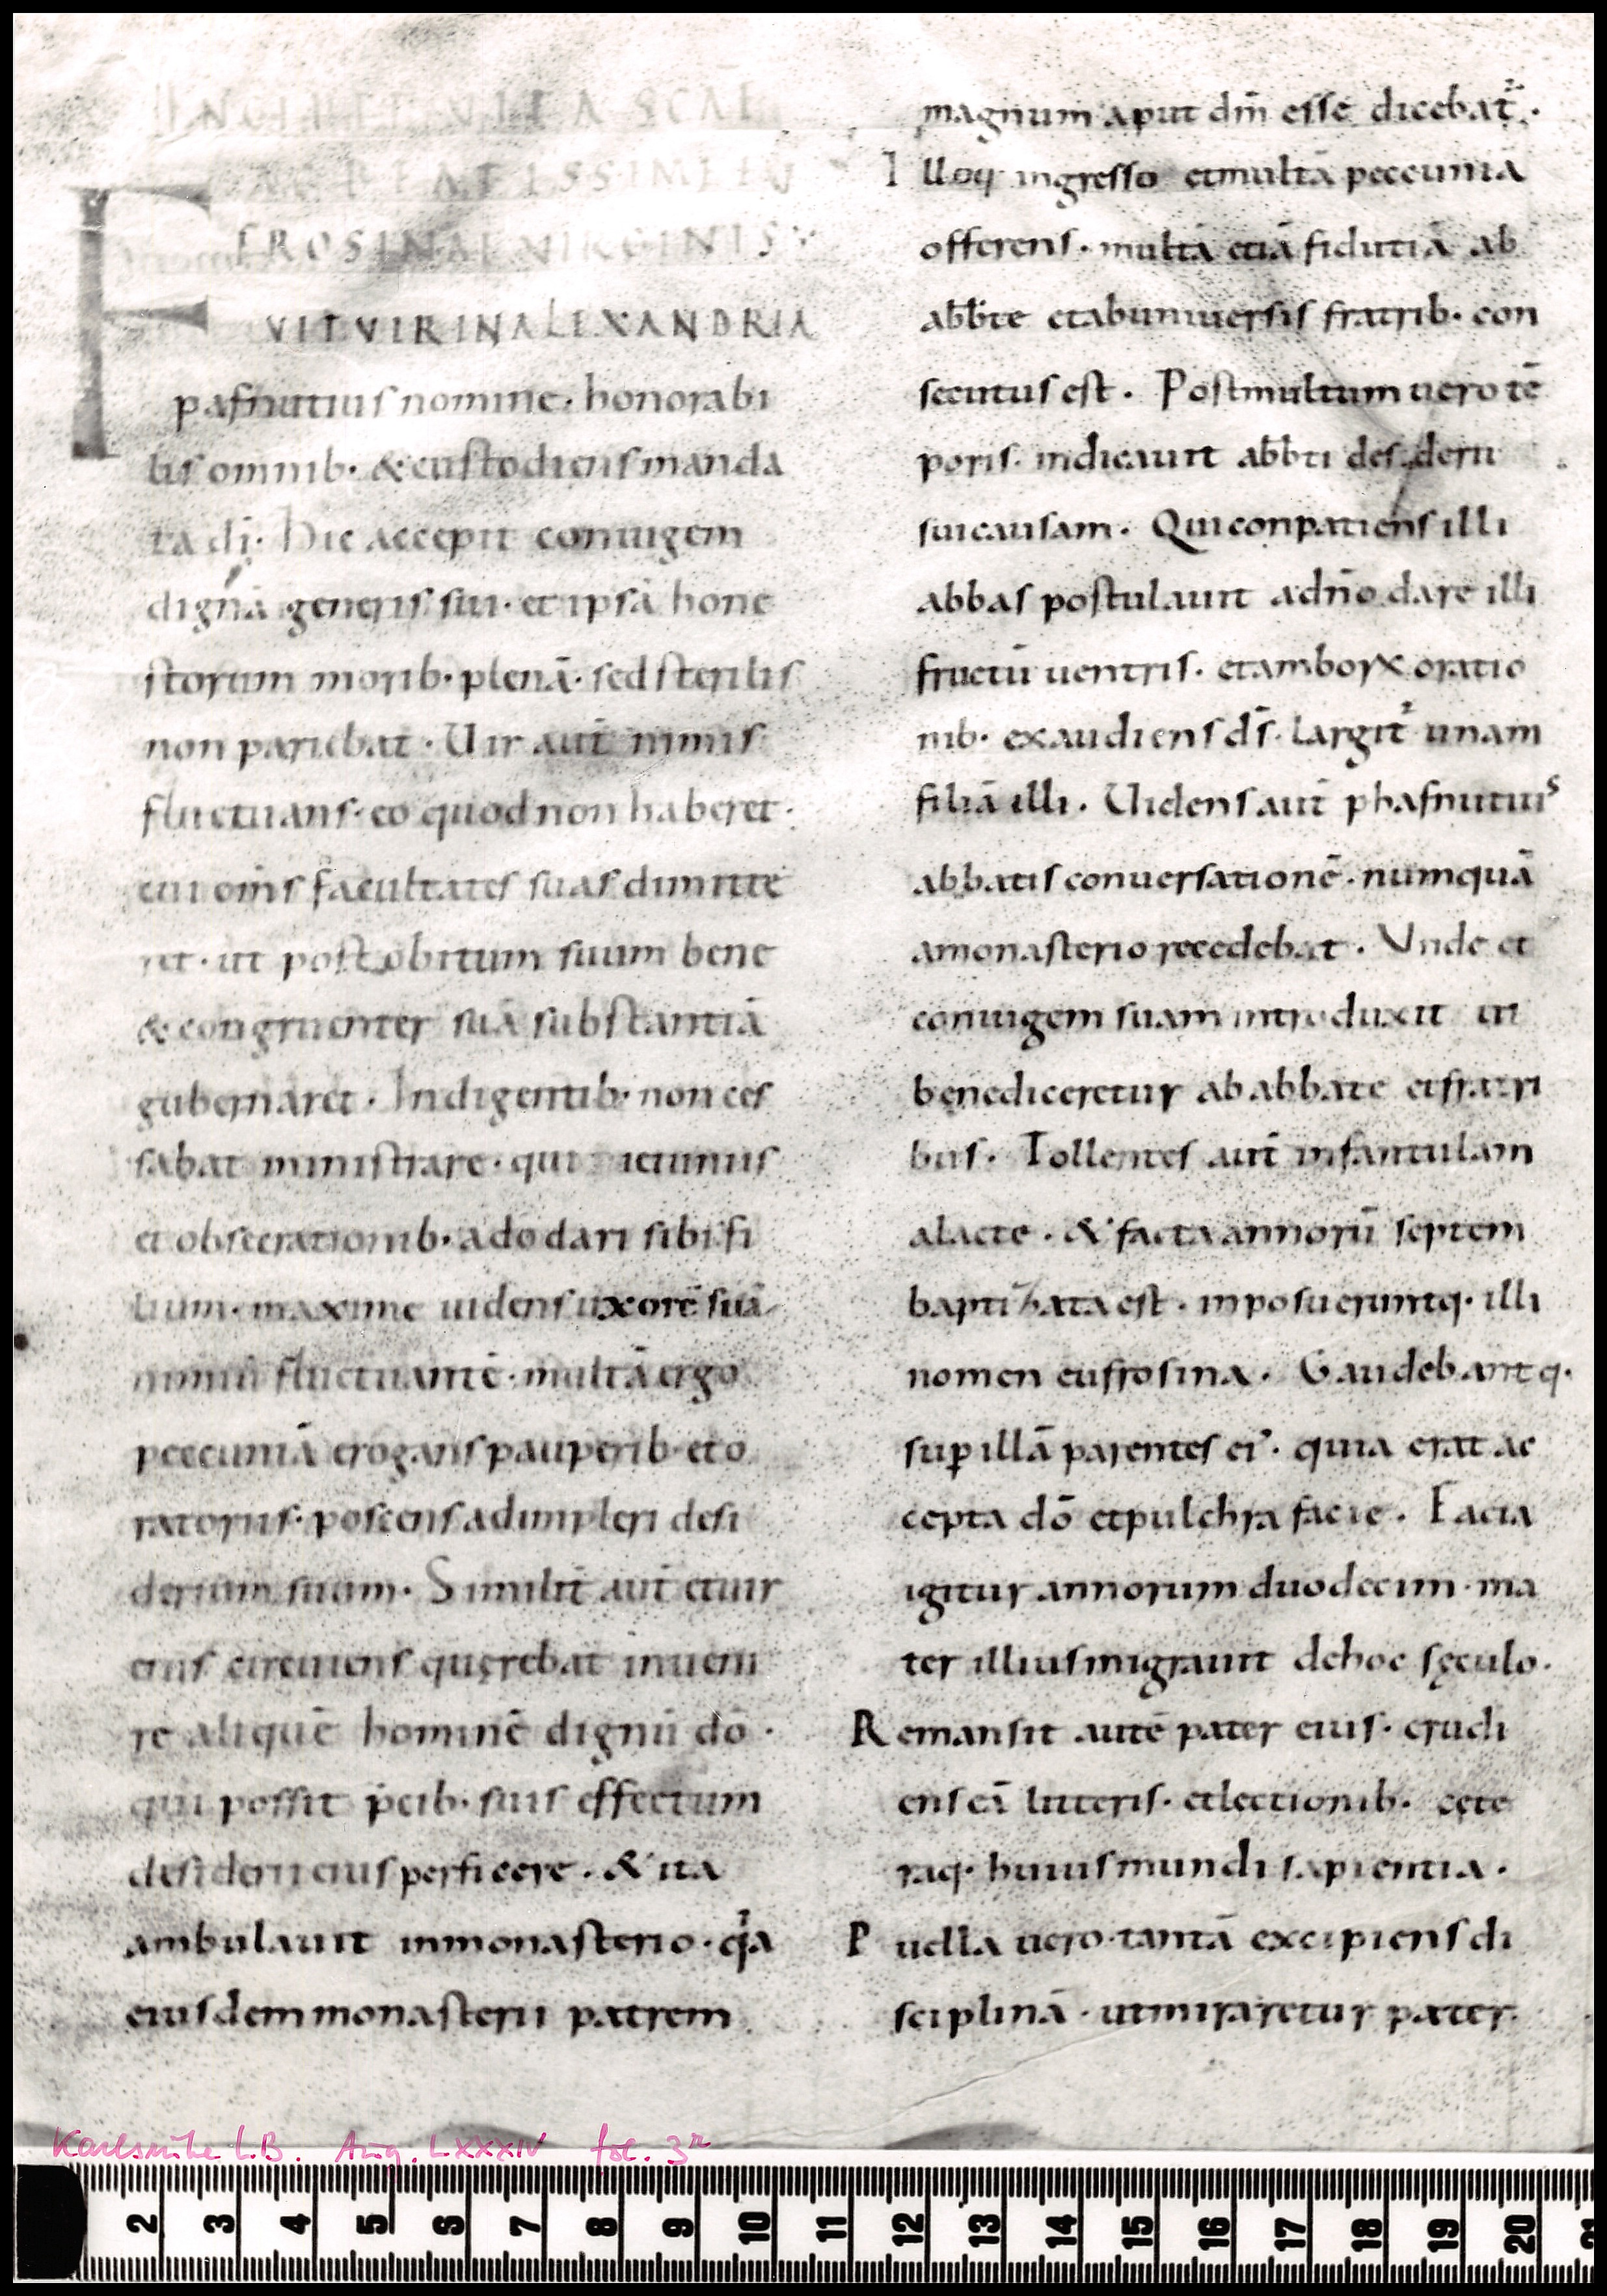 INCIPIT VITA SCAE
FROSINAE VIRGINIS
FVIT VIR IN ALEXANDRIA
pafnutius nomine. honorabi
lis omnib. & custodiens manda
ta dī. Hic accepit coniugem
dignā generis sui. et ipsā hone
storum morib. plenā. sed sterilis
non pariebat. Uir aut̄ nimis
fluctuans. eo quod non haberet.
cui om̄s facultates suas dimitte
ret. ut post obitum suum bene
& congruenter suā substantiā
gubernaret. Indigentib. non ces
sabat ministrare. qui ieiuniis
et obsecrationib. a dō dari sibi fi
lium. maxime uidens uxorē suā
nimiū fluctuantē. multā ergo
peccuniā erogans pauperib. et o
ratoriis. poscens adimpleri desi
derium suum. Similit̄ aut̄ et uir
eius circuiens quęrebat inueni
re aliquē hominē dignū dō.
qui possit p̄cib. suis effectum
desiderii eius perficere. & ita
ambulauit in monasterio. q̓a
eiusdem monasterii patrem
magnum aput dm̄ esse dicebat̄.
Illoq; ingresso et multā peccuniā
offerens. multā etiā fidutiā ab
abb̄te et ab uniuersis fratrib. con
secutus est. Post multum uero tē
poris. indicauit abb̄ti desiderii
sui causam. Qui conpatiens illi
abbas postulauit a dn̄o dare illi
fructū uentris. et amborꝝ oratio
nib. exaudiens d̄s. largit̄ unam
filiā illi. Uidens aut̄ phafnutius
abbatis conuersationē. numquā
a monasterio recedebat. Unde et
coniugem suam introduxit ut
benediceretur ab abbate et fratri
bus. Tollentes aut̄ infantulam
a lacte. & facta annorū septem
baptizata est. inposueruntq. illi
nomen eufrosina. Gaudebantq.
sup̄ illā parentes ei᾽. quia erat ac
cepta dō et pulchra facie. Facta
igitur annorum duodecim. ma
ter illius migrauit de hoc sęculo.
Remansit autē pater eius. erudi
ens eā litteris. et lectionib. cęte
raq. huius mundi sapientia.
Puella uero tantā excipiens di
sciplinā. ut miraretur pater.
Karlsruhe L.B. Aug. LXXXIV fol. 3r
2 3 4 5 6 7 8 9 10 11 12 13 14 15 16 17 18 19 20